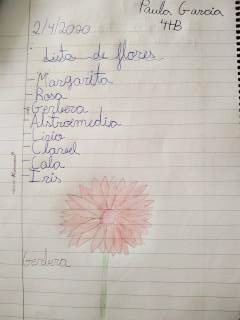 Paula García
4ºB
2/4/2020
Lista de flores
- Margarita
- Rosa
- Gerbera
- Alstroemedia
- Lirio
- Clavel
- Cala
- Iris
Gerbera